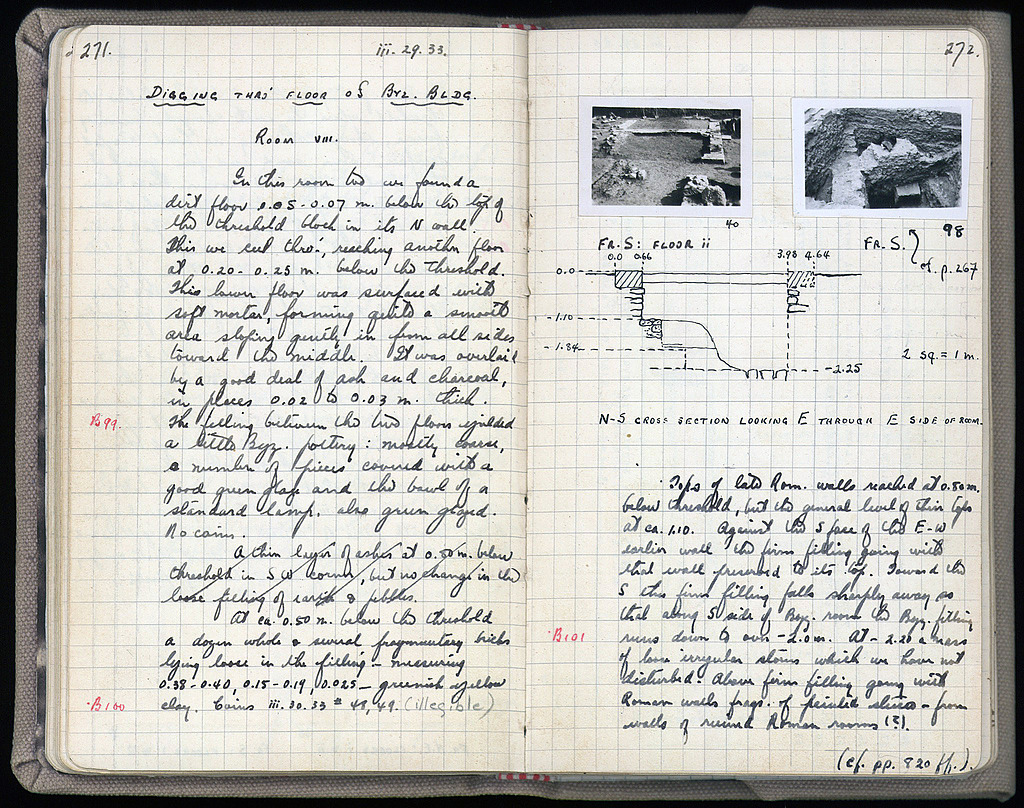 271.
iii. 29. 33.
DIGGING THRO' FLOOR OF BYZ. BLDG.
ROOM VIII.
In this room too we found a
dirt floor 0.05-0.07 m. below the top of
the threshold block in its N wall.
This we cut thro', reaching another floor
at 0.20-0.25 m. below the threshold.
This lower floor was surfaced with
soft mortar, forming quite a smooth
area sloping gently in from all sides
toward the middle. It was overlaid
by a good deal of ash and charcoal,
in places 0.02 to 0.03 m. thick.
B99.
The filling between the two floors yielded
a little Byz. pottery: mostly coarse,
a number of pieces covered with a
good green glaze and the bowl of a
standard lamp, also green glazed.
No coins.
A thin layer of ashes at 0.50 m. below
threshold in SW corner, but no change in the
loose filling of earth & pebbles.
At ca. 0.50 m. below the threshold
a dozen whole & several fragmentary bricks
lying loose in the filling - measuring
0.38-0.40, 0.15-0.19, 0.025 - greenish yellow
B100
clay. Coins iii.30.33 # 48, 49. (illegible)
272.
40
98
FR. S: FLOOR ii
FR. S.
cf. p. 267
0.0 0.66 3.98 4.64
0.0
-1.10
-1.84
-2.25
2 sq. = 1 m.
N-S CROSS SECTION LOOKING E THROUGH E SIDE OF ROOM.
Tops of late Rom. walls reached at 0.80 m.
below threshold, but the general level of their tops
at ca. 1.10. Against the S face of the E-W
earlier wall the firm filling going with
that wall preserved to its top. Toward the
S this firm filling falls sharply away so
that along S side of Byz. room the Byz. filling
B101
runs down to over -2.0 m. At -2.20 a mass
of loose irregular stones which we have not
disturbed. Above firm filling going with
Roman walls frags. of painted stucco - from
walls of ruined Roman rooms (?).
(cf. pp. 820 ff.).